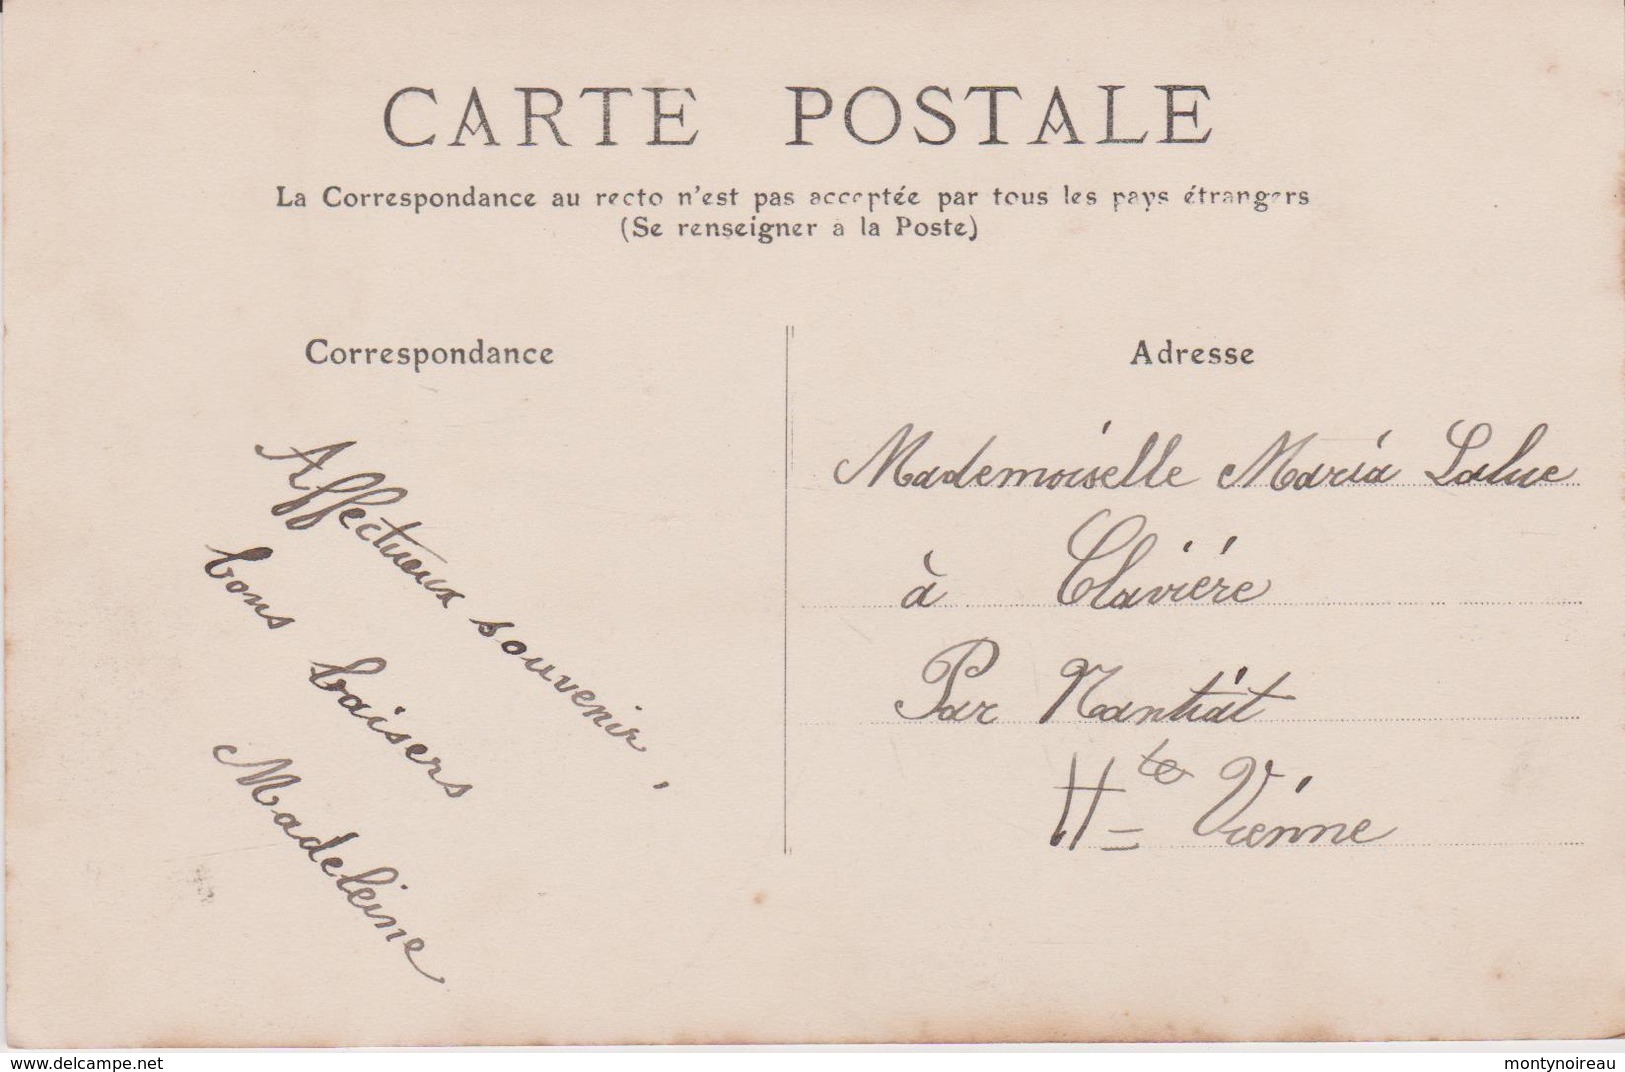 CARTE POSTALE
La Correspondance au recto n'est pas acceptée par tous les pays étrangers
(Se renseigner à la Poste)
Correspondance
Affectueux souvenir,
bons baisers
Madeleine
Adresse
Mademoiselle Maria Lalue
à Claviére
Par Nantiat
Hte Vienne
www.delcampe.net
montynoireau